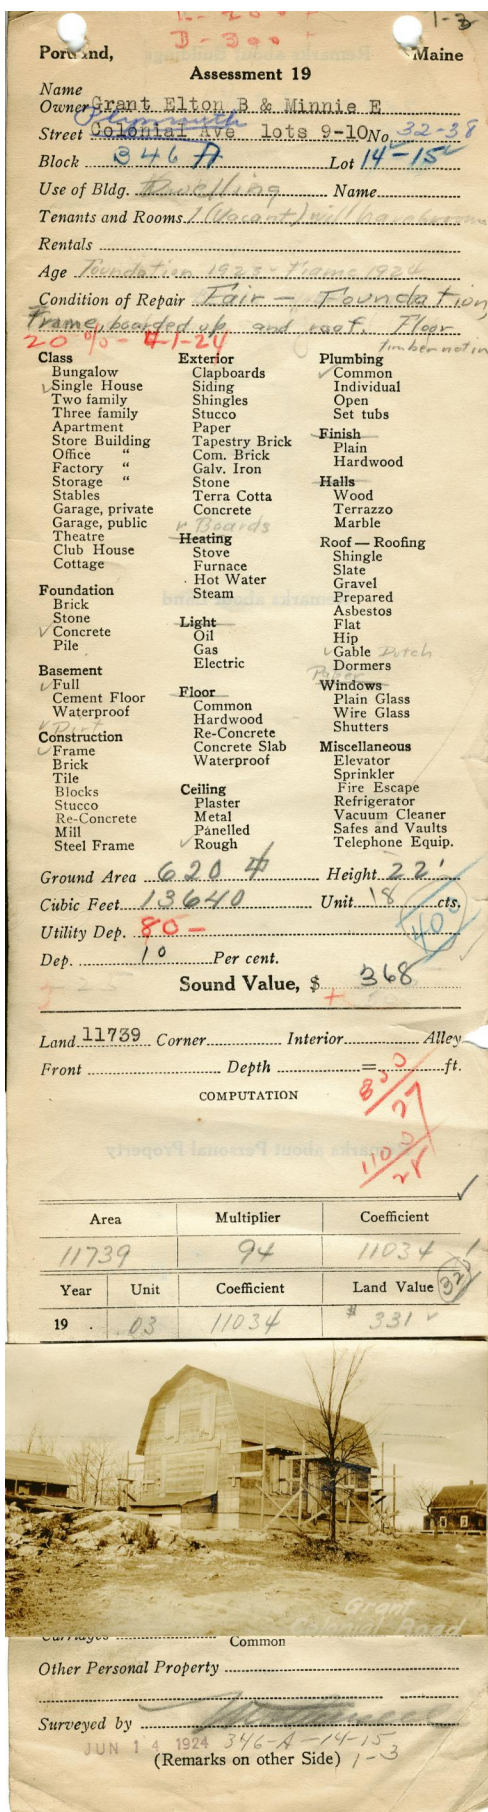 R-200+
D-300+
1-3
Portland, Maine
Assessment 19
Name
Owner Grant Elton B & Minnie E
Plymouth
Street Colonial Ave lots 9-10 No. 32-38
Block 346 A Lot 14-15
Use of Bldg. Dwelling Name
Tenants and Rooms 1 (Vacant) will have rooms
Rentals
Age Foundation 1923 - Frame 1924
Condition of Repair Fair - Foundation,
Frame, boarded up and roof. Floor
timber not in
20% - 4-1-24
Class
Bungalow
Single House
Two family
Three family
Apartment
Store Building
Office "
Factory "
Storage "
Stables
Garage, private
Garage, public
Theatre
Club House
Cottage
Foundation
Brick
Stone
Concrete
Pile
Basement
Full
Cement Floor
Waterproof
Dirt
Construction
Frame
Brick
Tile
Blocks
Stucco
Re-Concrete
Mill
Steel Frame
Exterior
Clapboards
Siding
Shingles
Stucco
Paper
Tapestry Brick
Com. Brick
Galv. Iron
Stone
Terra Cotta
Concrete
Boards
Heating
Stove
Furnace
Hot Water
Steam
Light
Oil
Gas
Electric
Floor
Common
Hardwood
Re-Concrete
Concrete Slab
Waterproof
Ceiling
Plaster
Metal
Panelled
Rough
Plumbing
Common
Individual
Open
Set tubs
Finish
Plain
Hardwood
Halls
Wood
Terrazzo
Marble
Roof — Roofing
Shingle
Slate
Gravel
Prepared
Asbestos
Flat
Hip
Gable Dutch
Dormers
Paper
Windows
Plain Glass
Wire Glass
Shutters
Miscellaneous
Elevator
Sprinkler
Fire Escape
Refrigerator
Vacuum Cleaner
Safes and Vaults
Telephone Equip.
Ground Area 620 Height 22'
Cubic Feet 13640 Unit 18 cts.
Utility Dep. 80-
400
Dep. 10 Per cent.
Sound Value, $ 368
Land 11739 Corner Interior Alley
Front Depth = ft.
COMPUTATION
850/27
1100/28
Area Multiplier Coefficient
11739 94 11034
Year Unit Coefficient Land Value
32
19 . .03 11034 $ 331
Grant
Colonial Road
Carriages
Common
Other Personal Property
Surveyed by
JUN 14 1924 346-A-14-15
(Remarks on other Side) 1-3